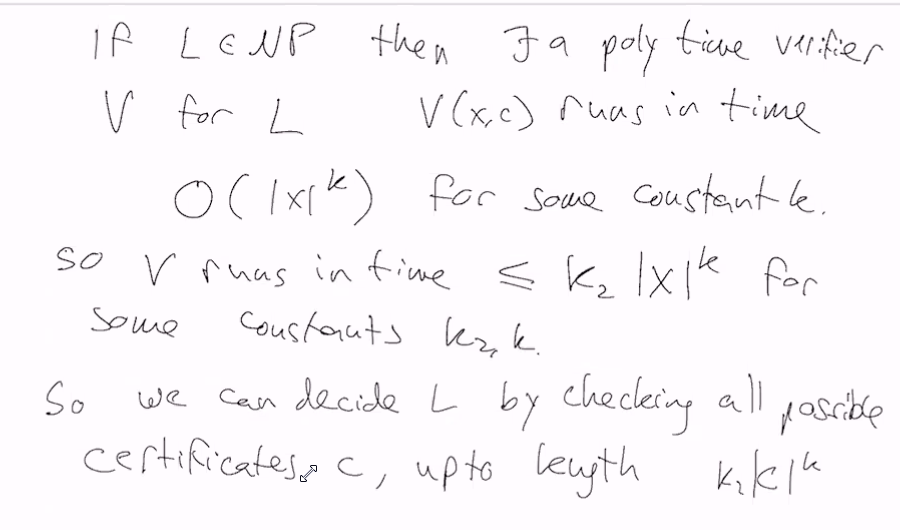 If L ∈ NP then ∃ a poly time verifier
V for L V(x,c) runs in time
O(|x|^k) for some constant k.
So V runs in time ≤ k₂ |x|^k for
some constants k₂, k.
So we can decide L by checking all possible
certificates, c, upto length k₂|c|^k